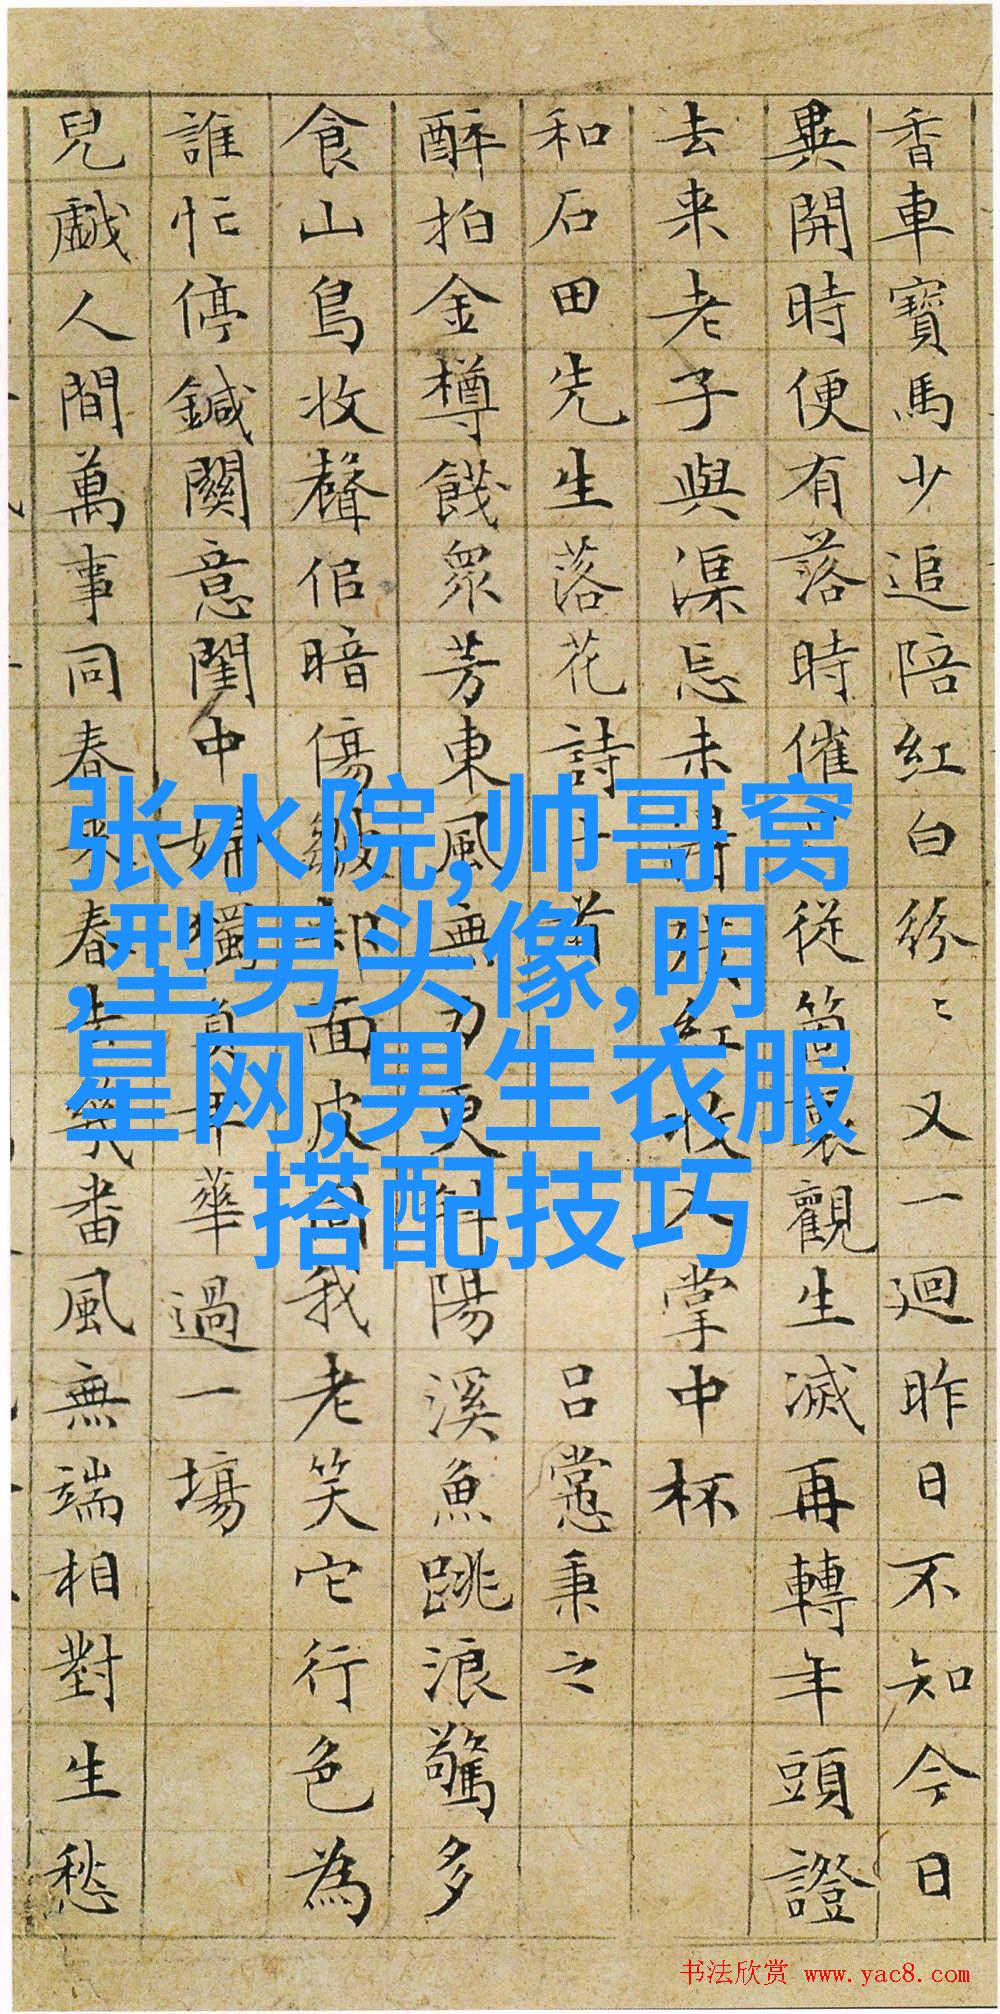 香車寶馬少追陪紅白紛〻又一迴昨日不知今日
異開時便有落時催從箇裏觀生滅再轉年頭證
去来老子與渠忘未紅收入掌中杯
和石田先生落花詩十首 呂㦂秉之
醉拍金樽餞眾芳東風無力更斜陽溪魚跳浪驚多
食山鳥收聲倍暗傷皺却面皮因我老笑它行色為
誰忙停鍼關意閨中婦獨負年華過一場
兒戲人間萬事同春来春去幾番風無端相對生愁
张水院,帅哥窝
,型男头像,明
星网,男生衣服
搭配技巧
书法欣赏 www.yac8.com